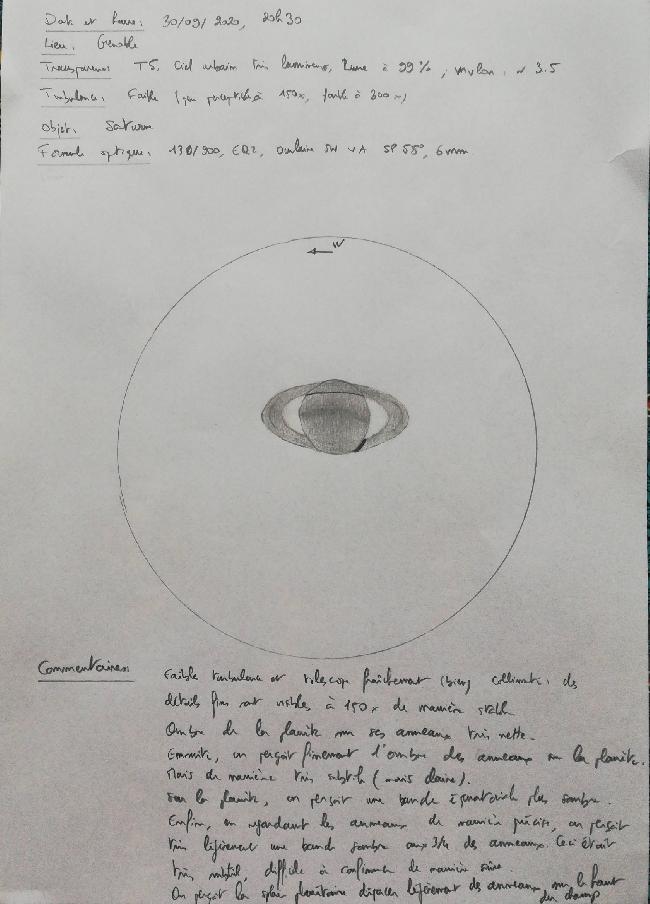 Date et heure: 30/09/2020, 20h30
Lieu: Grenoble
Transparence: T5, Ciel urbain très lumineux, Lune à 99%, mvlon: ~ 3.5
Turbulence: Faible (peu perceptible à 150x, faible à 300x)
Objet: Saturne
Formule optique: 130/900, EQ2, Oculaire SW SP 58°, 6mm
W
Commentaires: Faible turbulence et télescope fraîchement (bien) collimaté: des
détails fins sont visibles à 150x de manière stable
Ombre de la planète sur ses anneaux très nette.
Ensuite, on perçoit finement l'ombre des anneaux sur la planète.
Mais de manière très subtile (mais claire).
Sur la planète, on perçoit une bande équatoriale plus sombre.
Enfin, en regardant les anneaux de manière précise, on perçoit
très légèrement une bande sombre aux 3/4 des anneaux. Ceci était
très subtil, difficile à confirmer de manière sûre.
On perçoit la sphère planétaire dépasser légèrement des anneaux, sur le haut
du champ